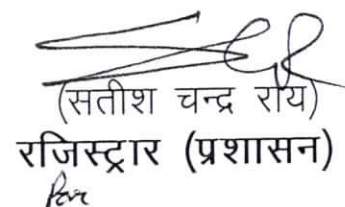 (सतीश चन्द्र रॉय)
रजिस्ट्रार (प्रशासन)